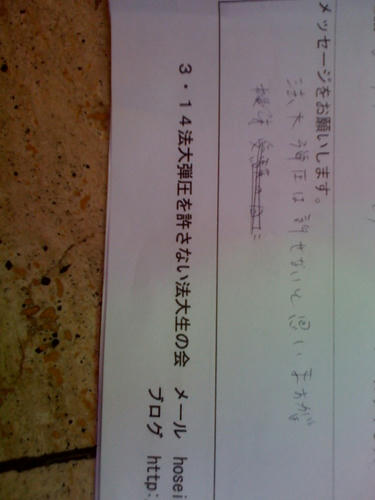 メッセージをお願いします。
法大弾圧は許せないと思いますが
3・14法大弾圧を許さない法大生の会 メール hosei
ブログ http: